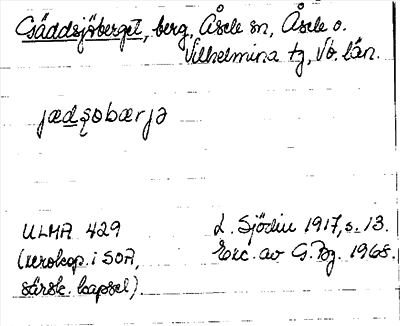 Gäddsjöberget, berg, Åsele sn, Åsele o.
Vilhelmina tg, Vb. län.
jædʂobærjə
ULMA 429
(xerokop. i SOA,
särsk. kapsel).
L. Sjödin 1917, s. 13.
Exc. av G. Bg. 1968.